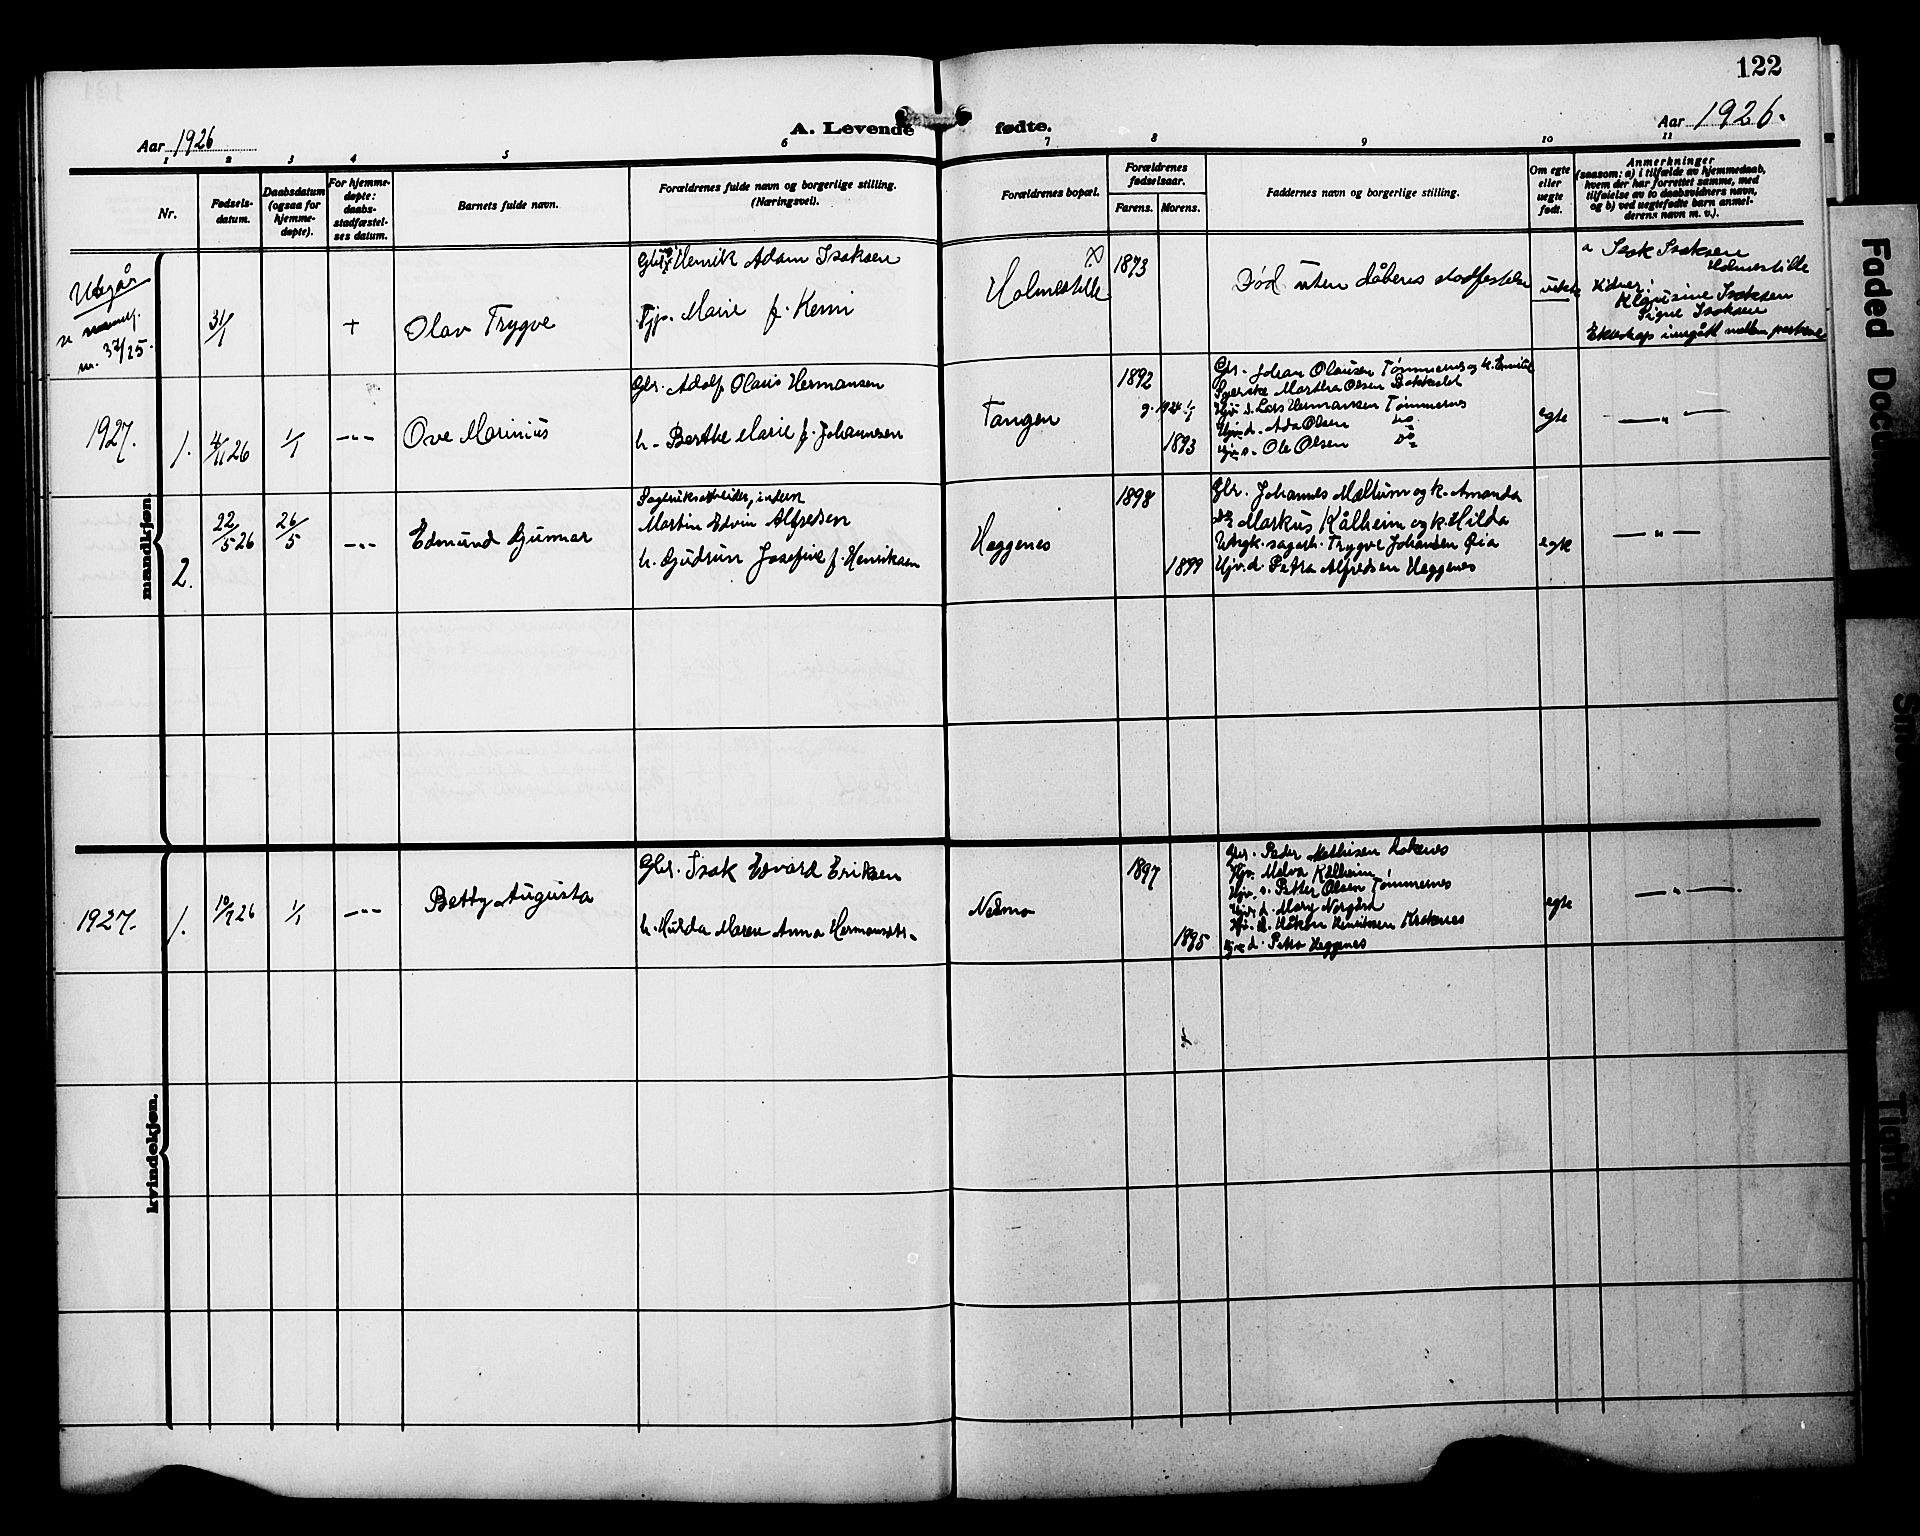 122
Aar 1926
A. Levende fødte.
Aar 1926.
1 2 3 4 5 6 7 8 9 10 11
Nr.
Fødsels-
datum.
Daabsdatum
(ogsaa for
hjemme-
døpte).
For hjemme-
døpte:
daabs-
stadfæstel-
ses datum.
Barnets fulde navn.
Forældrenes fulde navn og borgerlige stilling.
(Næringsvei).
Forældrenes bopæl.
Forældrenes
fødselsaar.
Farens. Morens.
Faddernes navn og borgerlige stilling.
Om egte
eller
uegte
født.
Anmerkninger
(saasom: a) i tilfælde av hjemmedaab,
hvem der har forrettet samme, med
tilføielse av to daabsvidners navn,
og b) ved uegtefødte barn anmel-
derens navn m. v.).
mandkjøn.
Utgår
nr. 37/25.
31/1
+
Olav Trygve
Henrik Adam Isaksen
Tjp. Marie f. Kemi
Holmestille
1873
Død uten dåbens stadfestelse
uekte
a Isak Isaksen
Holmestille
Vidner:
Klausine Isaksen
Signe Isaksen
Ekteskap inngått mellem partene
1927. 1.
4/11 26
1/1
-"-
Ove Marinius
Gbr. Adolf Olaus Hermansen
h. Berthe Marie f. Johannesen
Tangen
1892
g. 1921 1/1
1893
Gbr. Johan Olausen Tømmernes og k.
Martha Olsen
Ujv. s. Lars Hermansen Tømmernes
Ujv. d. Ada Olsen do
Ujv. s. Ole Olsen do
egte
— " —
2.
22/5 26
26/5
-"-
Edmund Gunnar
Sagbruksarbeider, inderst
Martin Edvin Alfredsen
h. Gudrun Josefine f. Henriksen
Heggenes
1898
1899
Gbr. Johannes Mællum og k. Amanda
do Markus Kålheim og k. Hilda
Ungk. sagarb. Trygve Johansen Øia
Ujv. d. Petra Alfredsen Heggenes
egte
— " —
kvindekjøn.
1927. 1.
10/7 26
1/1
-"-
Betty Augusta
Gbr. Isak Edvard Eriksen
h. Hulda Maren Anna Hermansdtr.
Nesmo
1897
1895
Gbr. Peder Mathisen
Ujv. Malva Kålheim
Ujv. s. Petter Olsen Tømmernes
Ujv. d. Mary Norgård
Ujv. s. Håkon Henriksen Kroknes
Ujv. d. Petra Heggenes
egte
— " —
Faded Docu
Tight